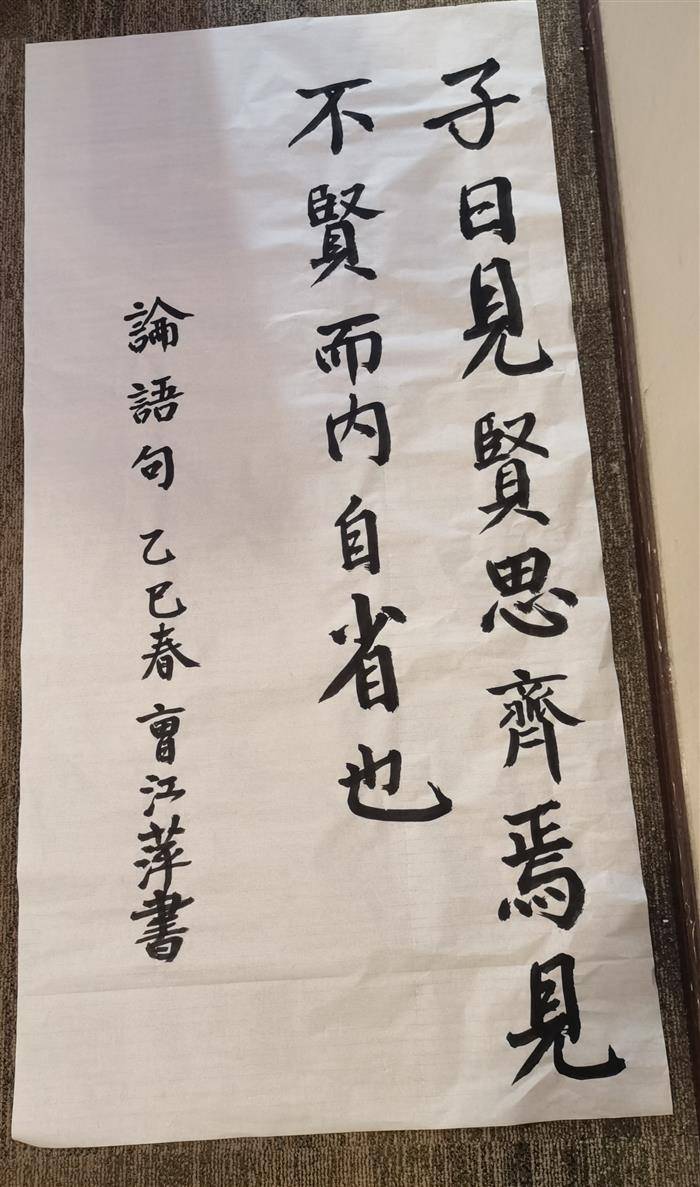 子曰見賢思齊焉見
不賢而内自省也
論語句 乙巳春 曹江萍書